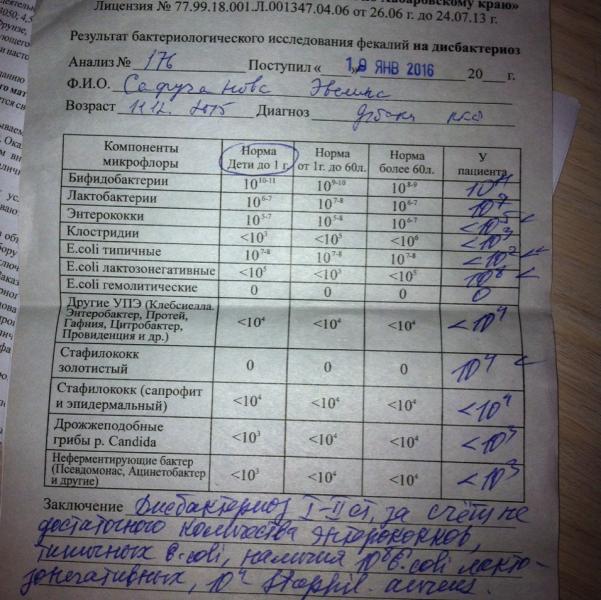 по Хабаровскому краю»
Лицензия № 77.99.18.001.Л.001347.04.06 от 26.06 г. до 24.07.13 г.
Результат бактериологического исследования фекалий на дисбактериоз
Анализ № 176 Поступил « 19 ЯНВ 2016 20 г.
Ф.И.О. Эвелина
Возраст 11.12. 2015 Диагноз
Компоненты микрофлоры Норма Дети до 1 г. Норма от 1г. до 60л. Норма более 60л. У пациента
Бифидобактерии 10¹⁰⁻¹¹ 10⁹⁻¹⁰ 10⁸⁻⁹
Лактобактерии 10⁶⁻⁷ 10⁷⁻⁸ 10⁶⁻⁷ 10⁷
Энтерококки 10⁵⁻⁷ 10⁵⁻⁸ 10⁶⁻⁷ <10⁵
Клостридии <10³ <10⁵ <10⁶ <10³
E.coli типичные 10⁷⁻⁸ 10⁷⁻⁸ 10⁷⁻⁸ <10²
E.coli лактозонегативные <10⁵ <10⁵ <10⁵ 10⁸
E.coli гемолитические 0 0 0 0
Другие УПЭ (Клебсиелла, Энтеробактер, Протей, Гафния, Цитробактер, Провиденция и др.) <10⁴ <10⁴ <10⁴ <10⁴
Стафилококк золотистый 0 0 0 10⁴
Стафилококк (сапрофит и эпидермальный) <10⁴ <10⁴ <10⁴ <10⁴
Дрожжеподобные грибы р. Candida <10³ <10⁴ <10⁴ <10³
Неферментирующие бактер (Псевдомонас, Ацинетобактер и другие) <10³ <10⁴ <10⁴ <10³
Заключение Дисбактериоз I-II ст, за счёт не
достаточного количества энтерококков,
типичных E.coli, наличия 10⁸ E.coli лакто-
зонегативных, 10⁴ Staphil. aureus.